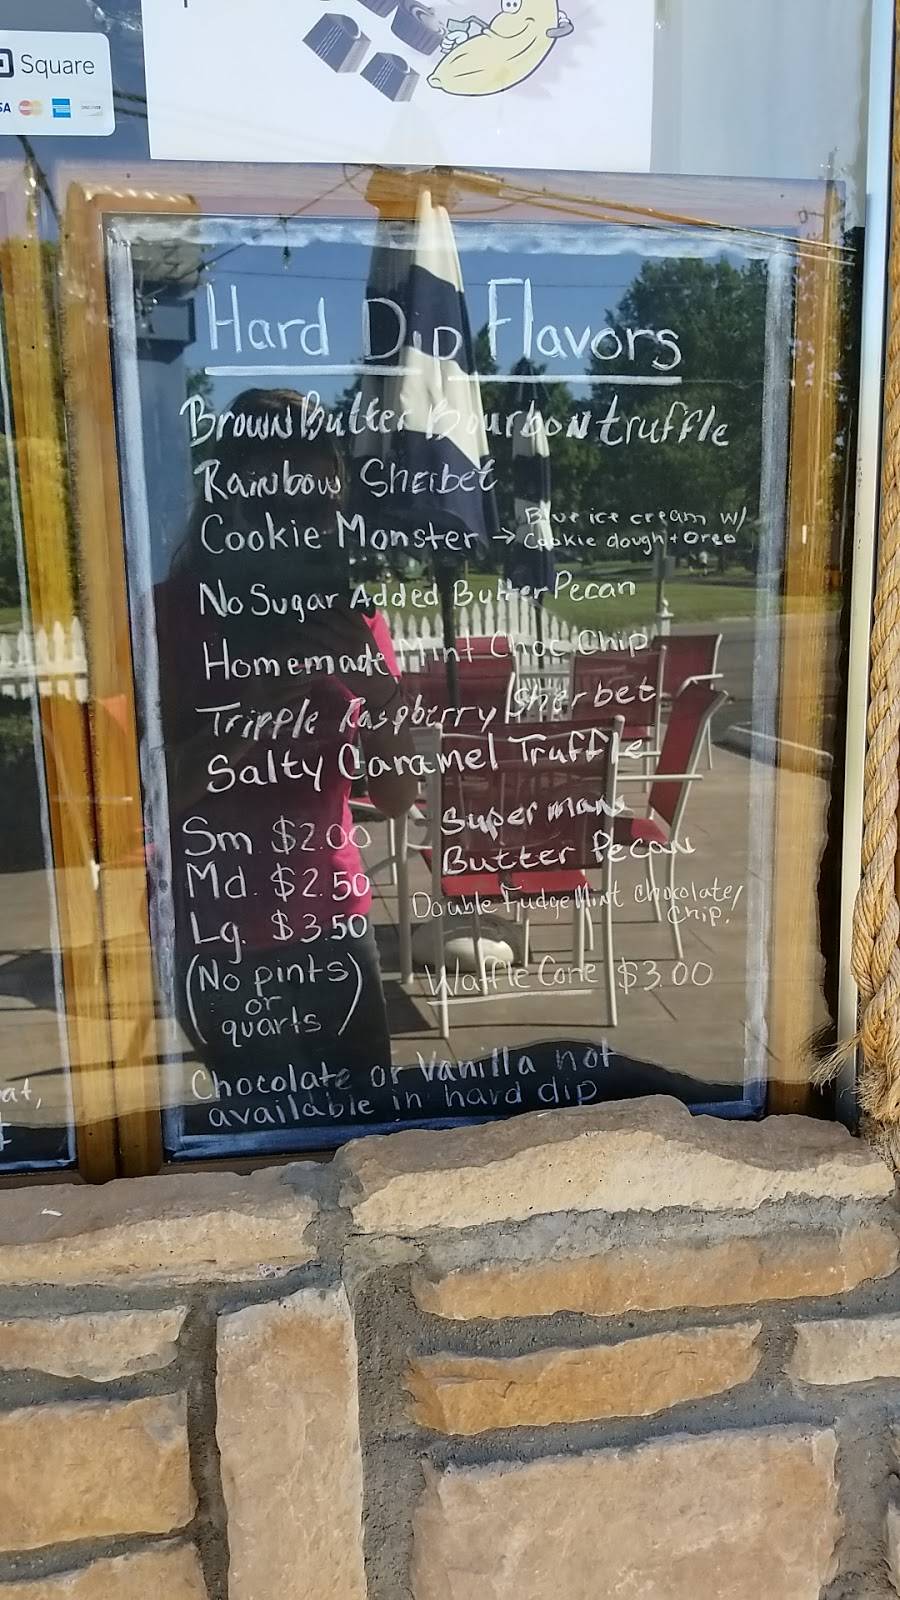 Square
VISA
Hard Dip Flavors
Brown Butter Bourbon truffle
Rainbow Sherbet
Cookie Monster → Blue ice cream w/
Cookie dough + oreo
No Sugar Added Butter Pecan
Homemade Mint Choc Chip
Tripple Raspberry Sherbet
Salty Caramel Truffle
Superman
Butter Pecan
Double Fudge Mint Chocolate/
Chip.
Waffle Cone $3.00
Sm $2.00
Md. $2.50
Lg. $3.50
(No pints
or
quarts)
Chocolate or Vanilla not
available in hard dip